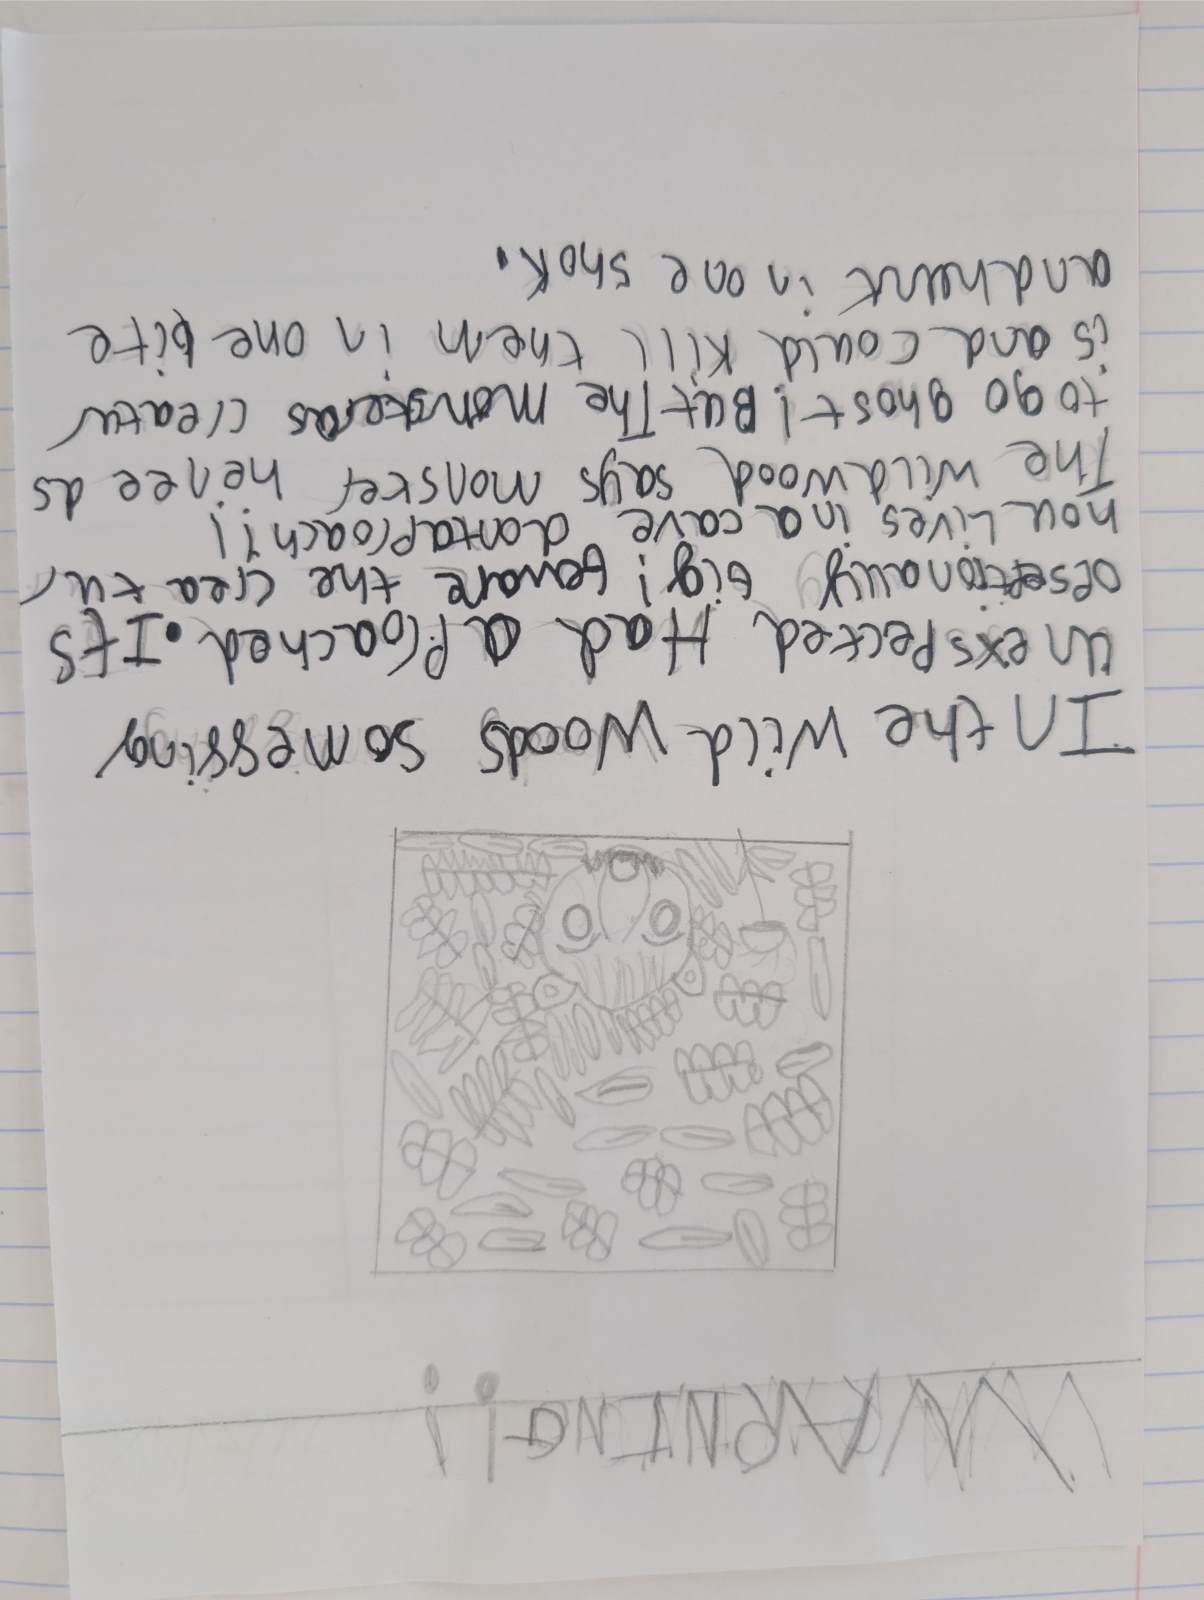 WARNING!!
In the Wild Woods somessing
unexspected Had aproached. Its
esseptionally big! beware the creatur
hou Lives in a cave dontaproach!!
The wildwood says monster heneeds
to go ghost! But The monsteras creatur
is and could kill them in one bite
and hant in one shok.